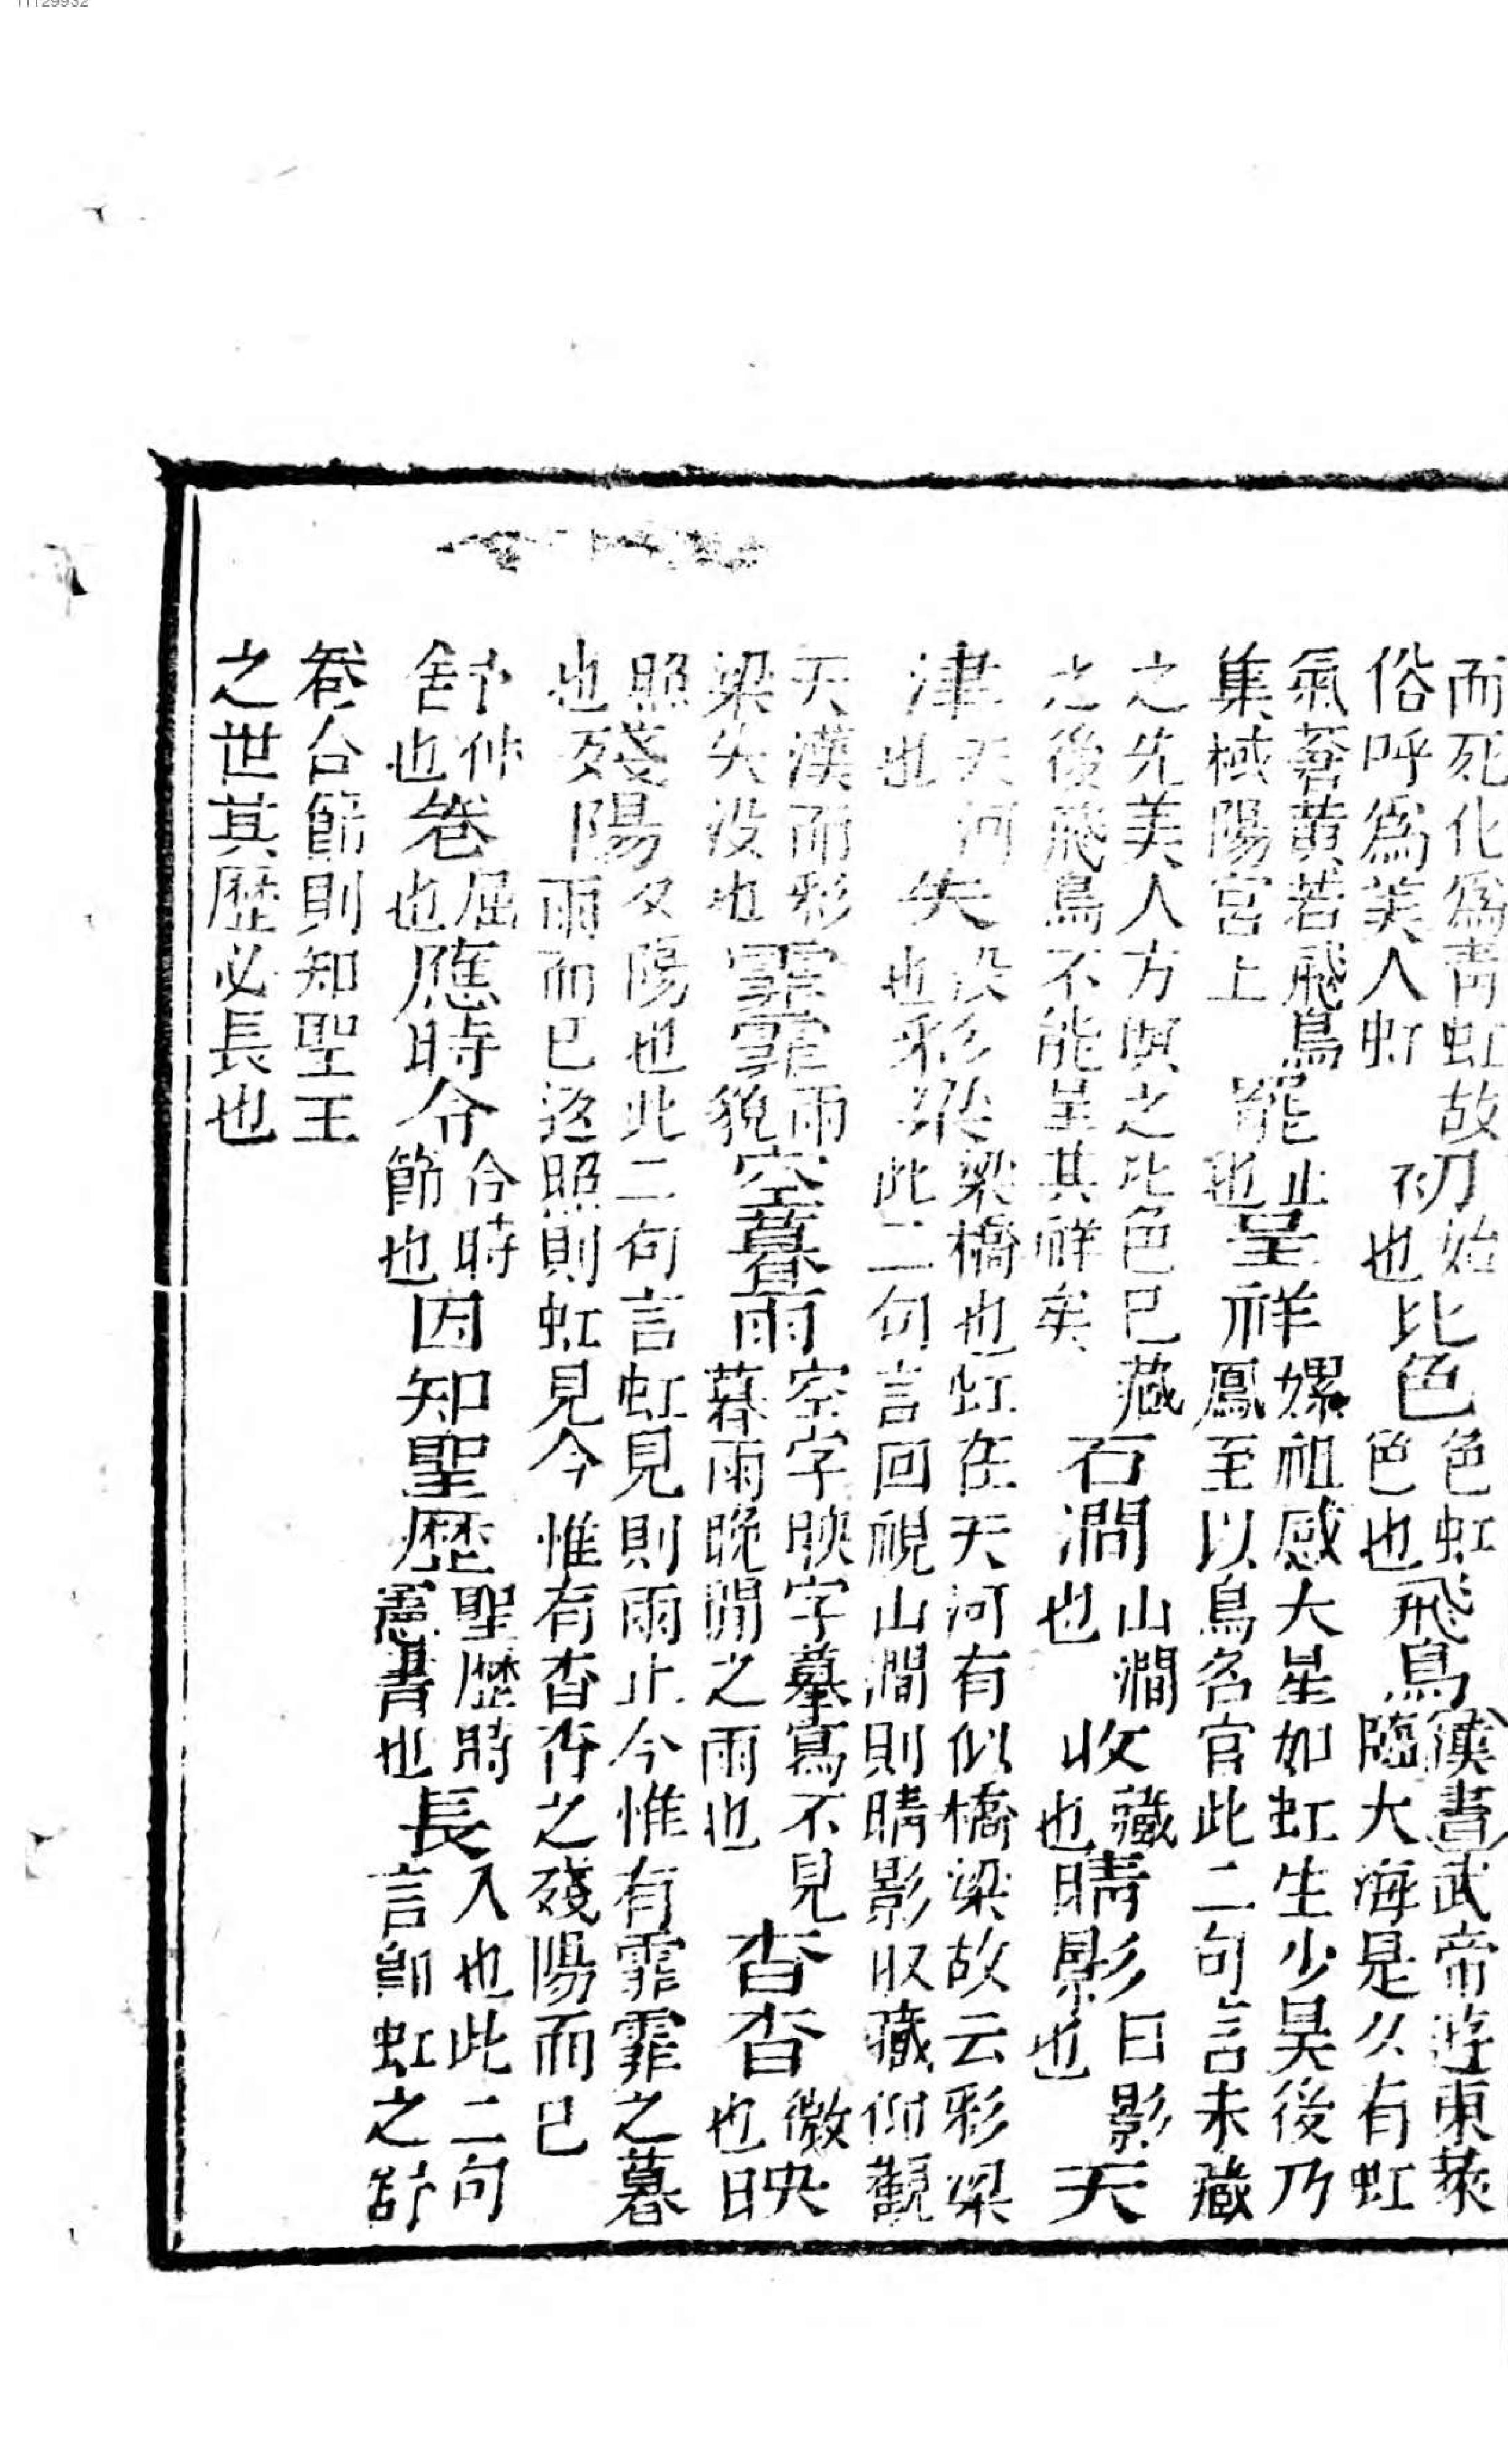 而死化爲青虹故俗呼爲美人虹初始也比色色虹色也飛鳥漢書武帝遊東萊臨大海是久有虹
氣蒼黃若飛鳥集棫陽宮上罷止也呈祥嫘祖感大星如虹生少昊後乃鳳至以鳥名官此二句言未藏
之先美人方暝之比色已藏之後飛鳥不能呈其祥矣石澗山澗也收藏也晴影日影也天
津天河也失没也彩梁梁橋也虹在天河有似橋梁故云彩梁此二句言回視山澗則晴影收藏仰觀
天漢而彩梁失没也霏霏雨貌空暮雨空字映字摹寫不見暮雨晚間之雨也杳杳微也映
照也殘陽夕陽也此二句言虹見則雨止今惟有霏霏之暮雨而已返照則虹見今惟有杳杳之殘陽而已
舒伸也卷屈也應時令令時節也因知聖歷聖歷時憲書也長久也此二句言卽虹之舒
卷合節則知聖王之世其歷必長也